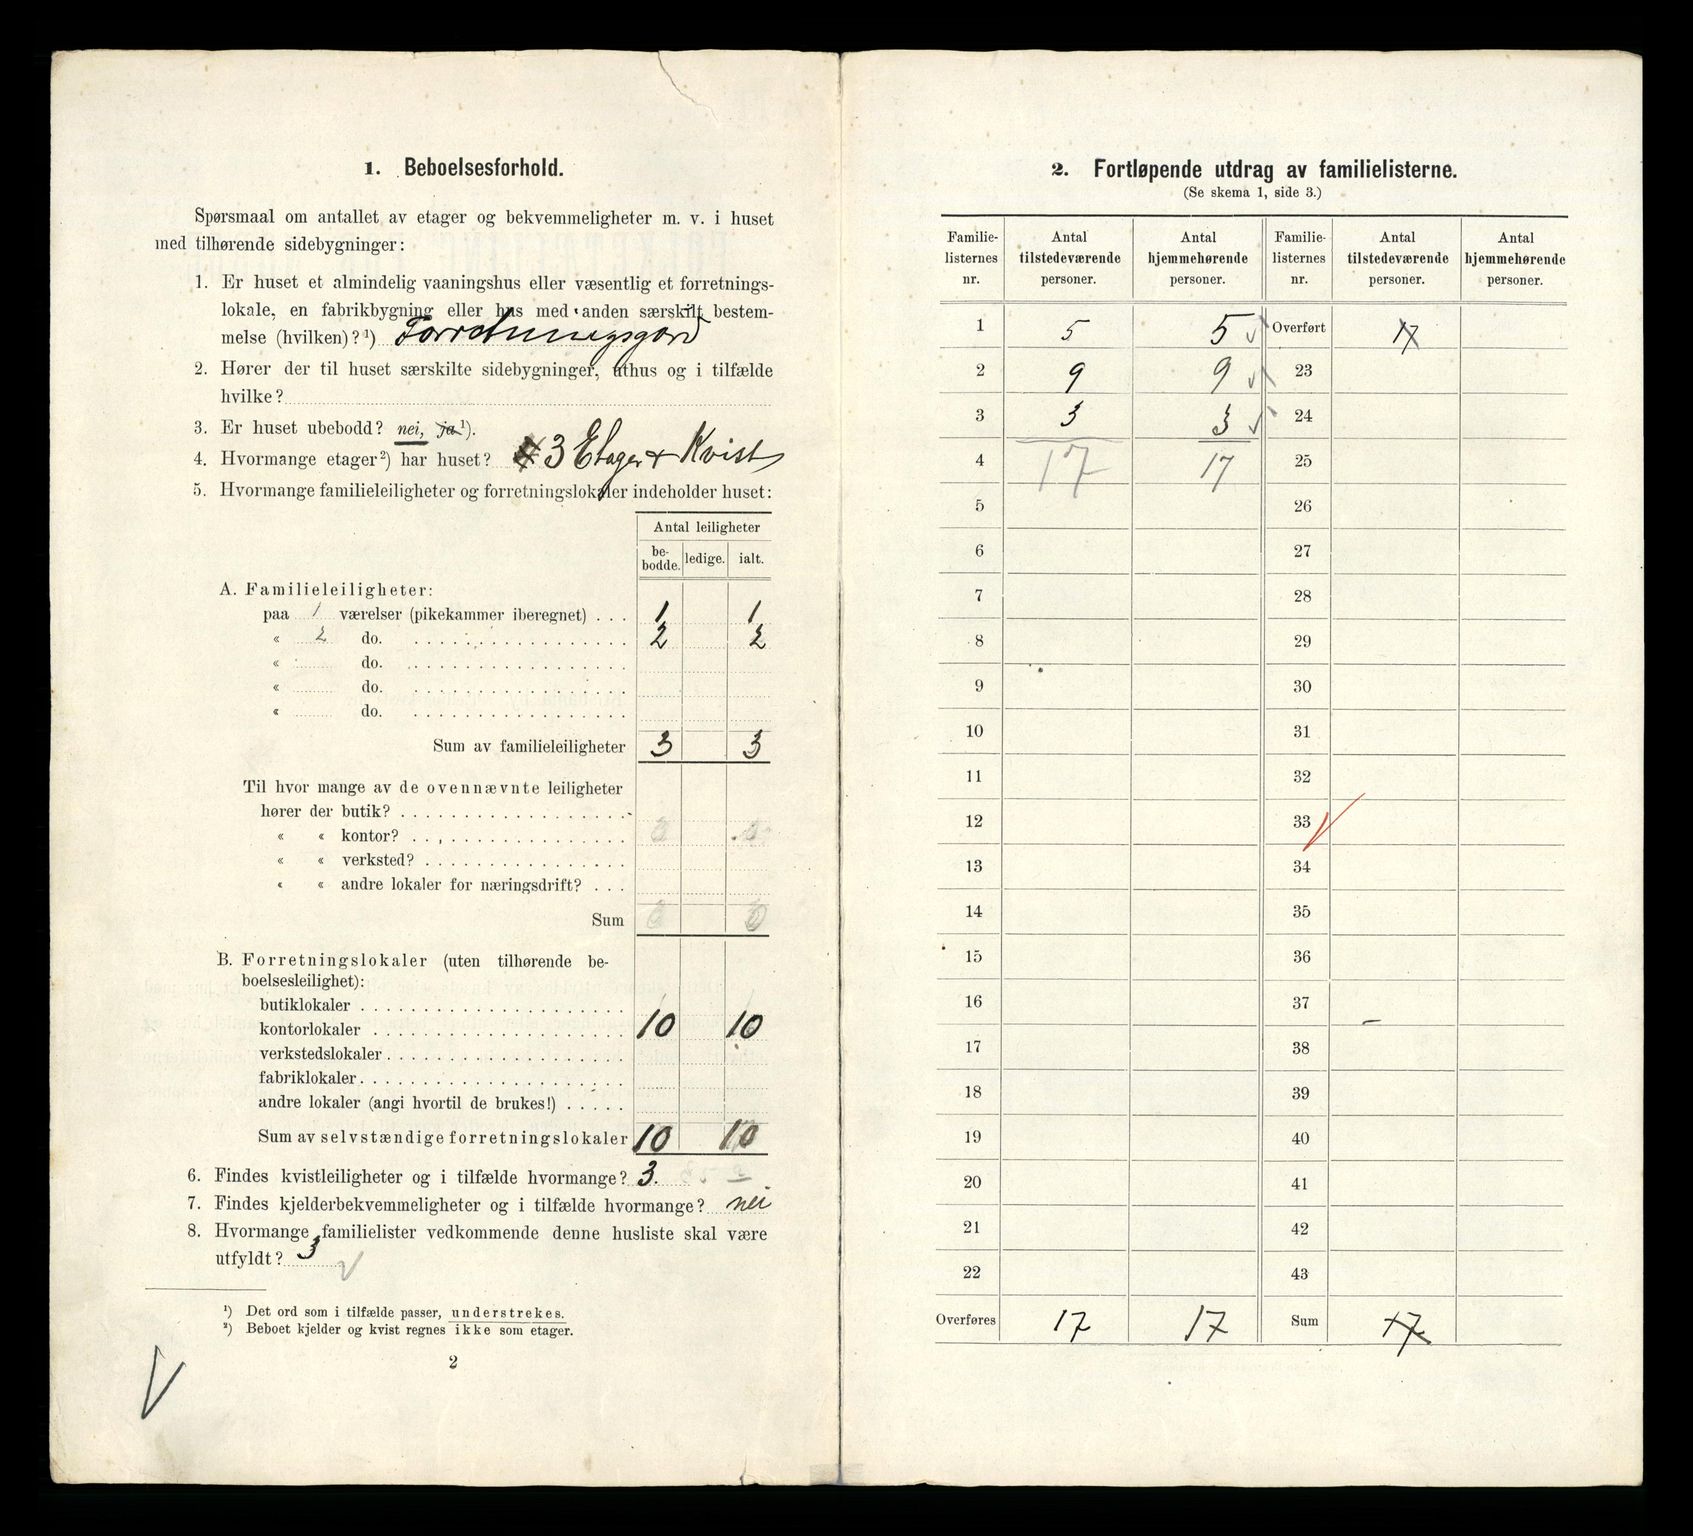 1. Beboelsesforhold.
Spørsmaal om antallet av etager og bekvemmeligheter m. v. i huset
med tilhørende sidebygninger:
1. Er huset et almindelig vaaningshus eller væsentlig et forretnings-
lokale, en fabrikbygning eller hus med anden særskilt bestem-
melse (hvilken)?¹) Forretningsgård
2. Hører der til huset særskilte sidebygninger, uthus og i tilfælde
hvilke?
3. Er huset ubebodd? nei, ja¹).
4. Hvormange etager²) har huset? 3 Etager + Kvist
5. Hvormange familieleiligheter og forretningslokaler indeholder huset:
Antal leiligheter
be-bodde. ledige. ialt.
A. Familieleiligheter:
paa 1 værelser (pikekammer iberegnet) . . . 1 1
« 2 do. 2 2
« do.
« do.
« do.
Sum av familieleiligheter 3 3
Til hvor mange av de ovennævnte leiligheter
hører der butik?
« « kontor?
« « verksted?
« « andre lokaler for næringsdrift? . . .
Sum
B. Forretningslokaler (uten tilhørende be-
boelsesleilighet):
butiklokaler
kontorlokaler 10 10
verkstedslokaler
fabriklokaler
andre lokaler (angi hvortil de brukes!)
Sum av selvstændige forretningslokaler 10 10
6. Findes kvistleiligheter og i tilfælde hvormange? 3.
7. Findes kjelderbekvemmeligheter og i tilfælde hvormange? nei
8. Hvormange familielister vedkommende denne husliste skal være
utfyldt? 3
¹) Det ord som i tilfælde passer, understrekes.
²) Beboet kjelder og kvist regnes ikke som etager.
2
2. Fortløpende utdrag av familielisterne.
(Se skema 1, side 3.)
Familie-listernes nr. Antal tilstedeværende personer. Antal hjemmehørende personer. Familie-listernes nr. Antal tilstedeværende personer. Antal hjemmehørende personer.
1 5 5 Overført 17
2 9 9 23
3 3 3 24
4 17 17 25
5 26
6 27
7 28
8 29
9 30
10 31
11 32
12 33
13 34
14 35
15 36
16 37
17 38
18 39
19 40
20 41
21 42
22 43
Overføres 17 17 Sum 17